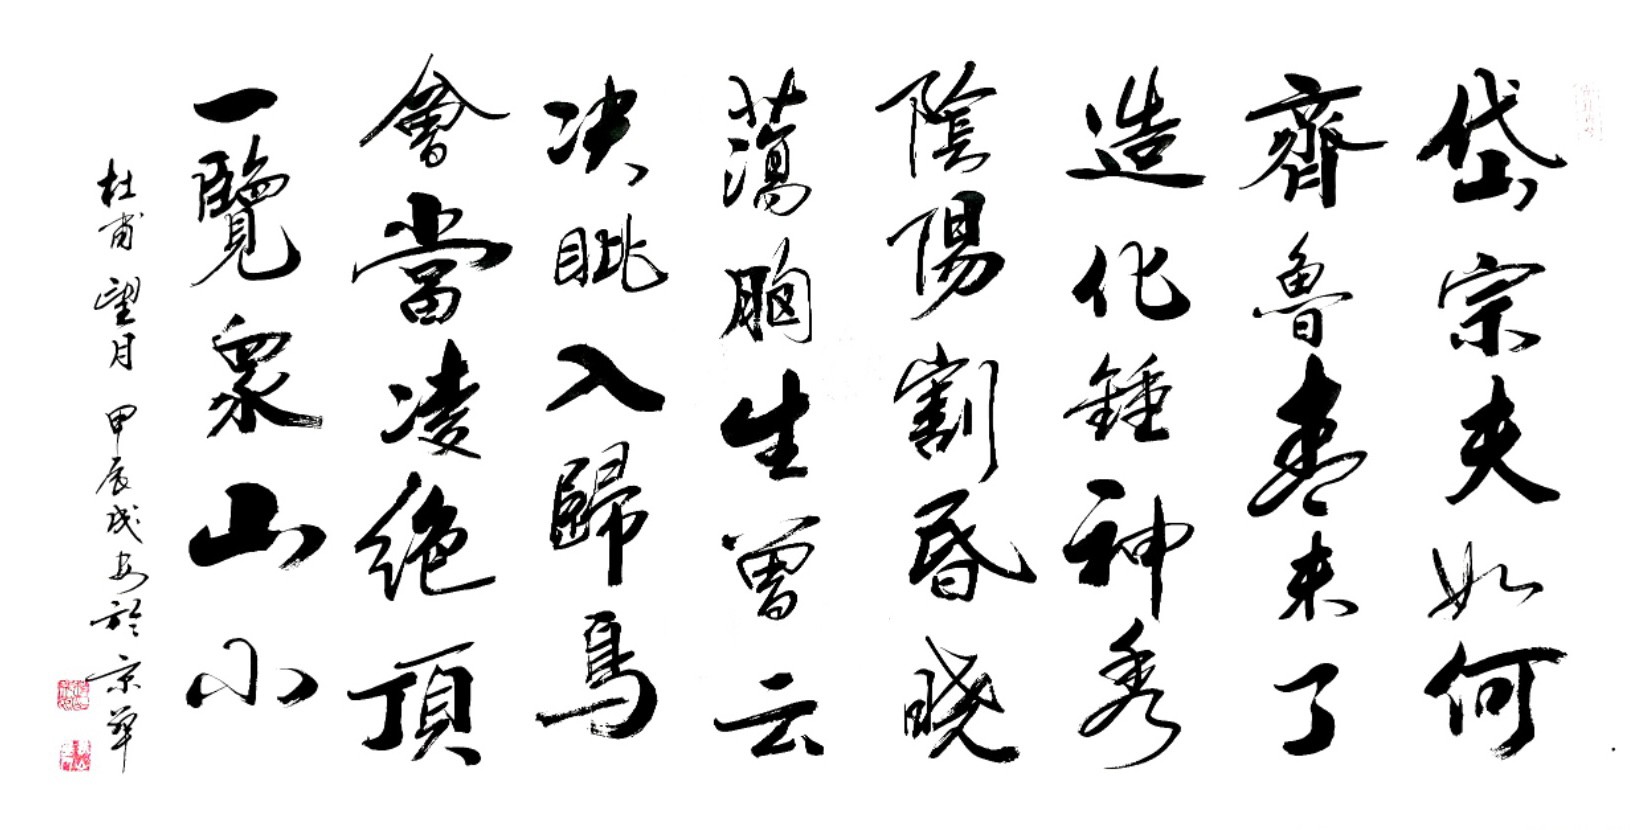 岱宗夫如何
齊魯青未了
造化鍾神秀
陰陽割昏曉
蕩胸生曾云
决眦入歸鳥
會當凌絶頂
一覽衆山小
杜甫望月 甲辰成安於京華